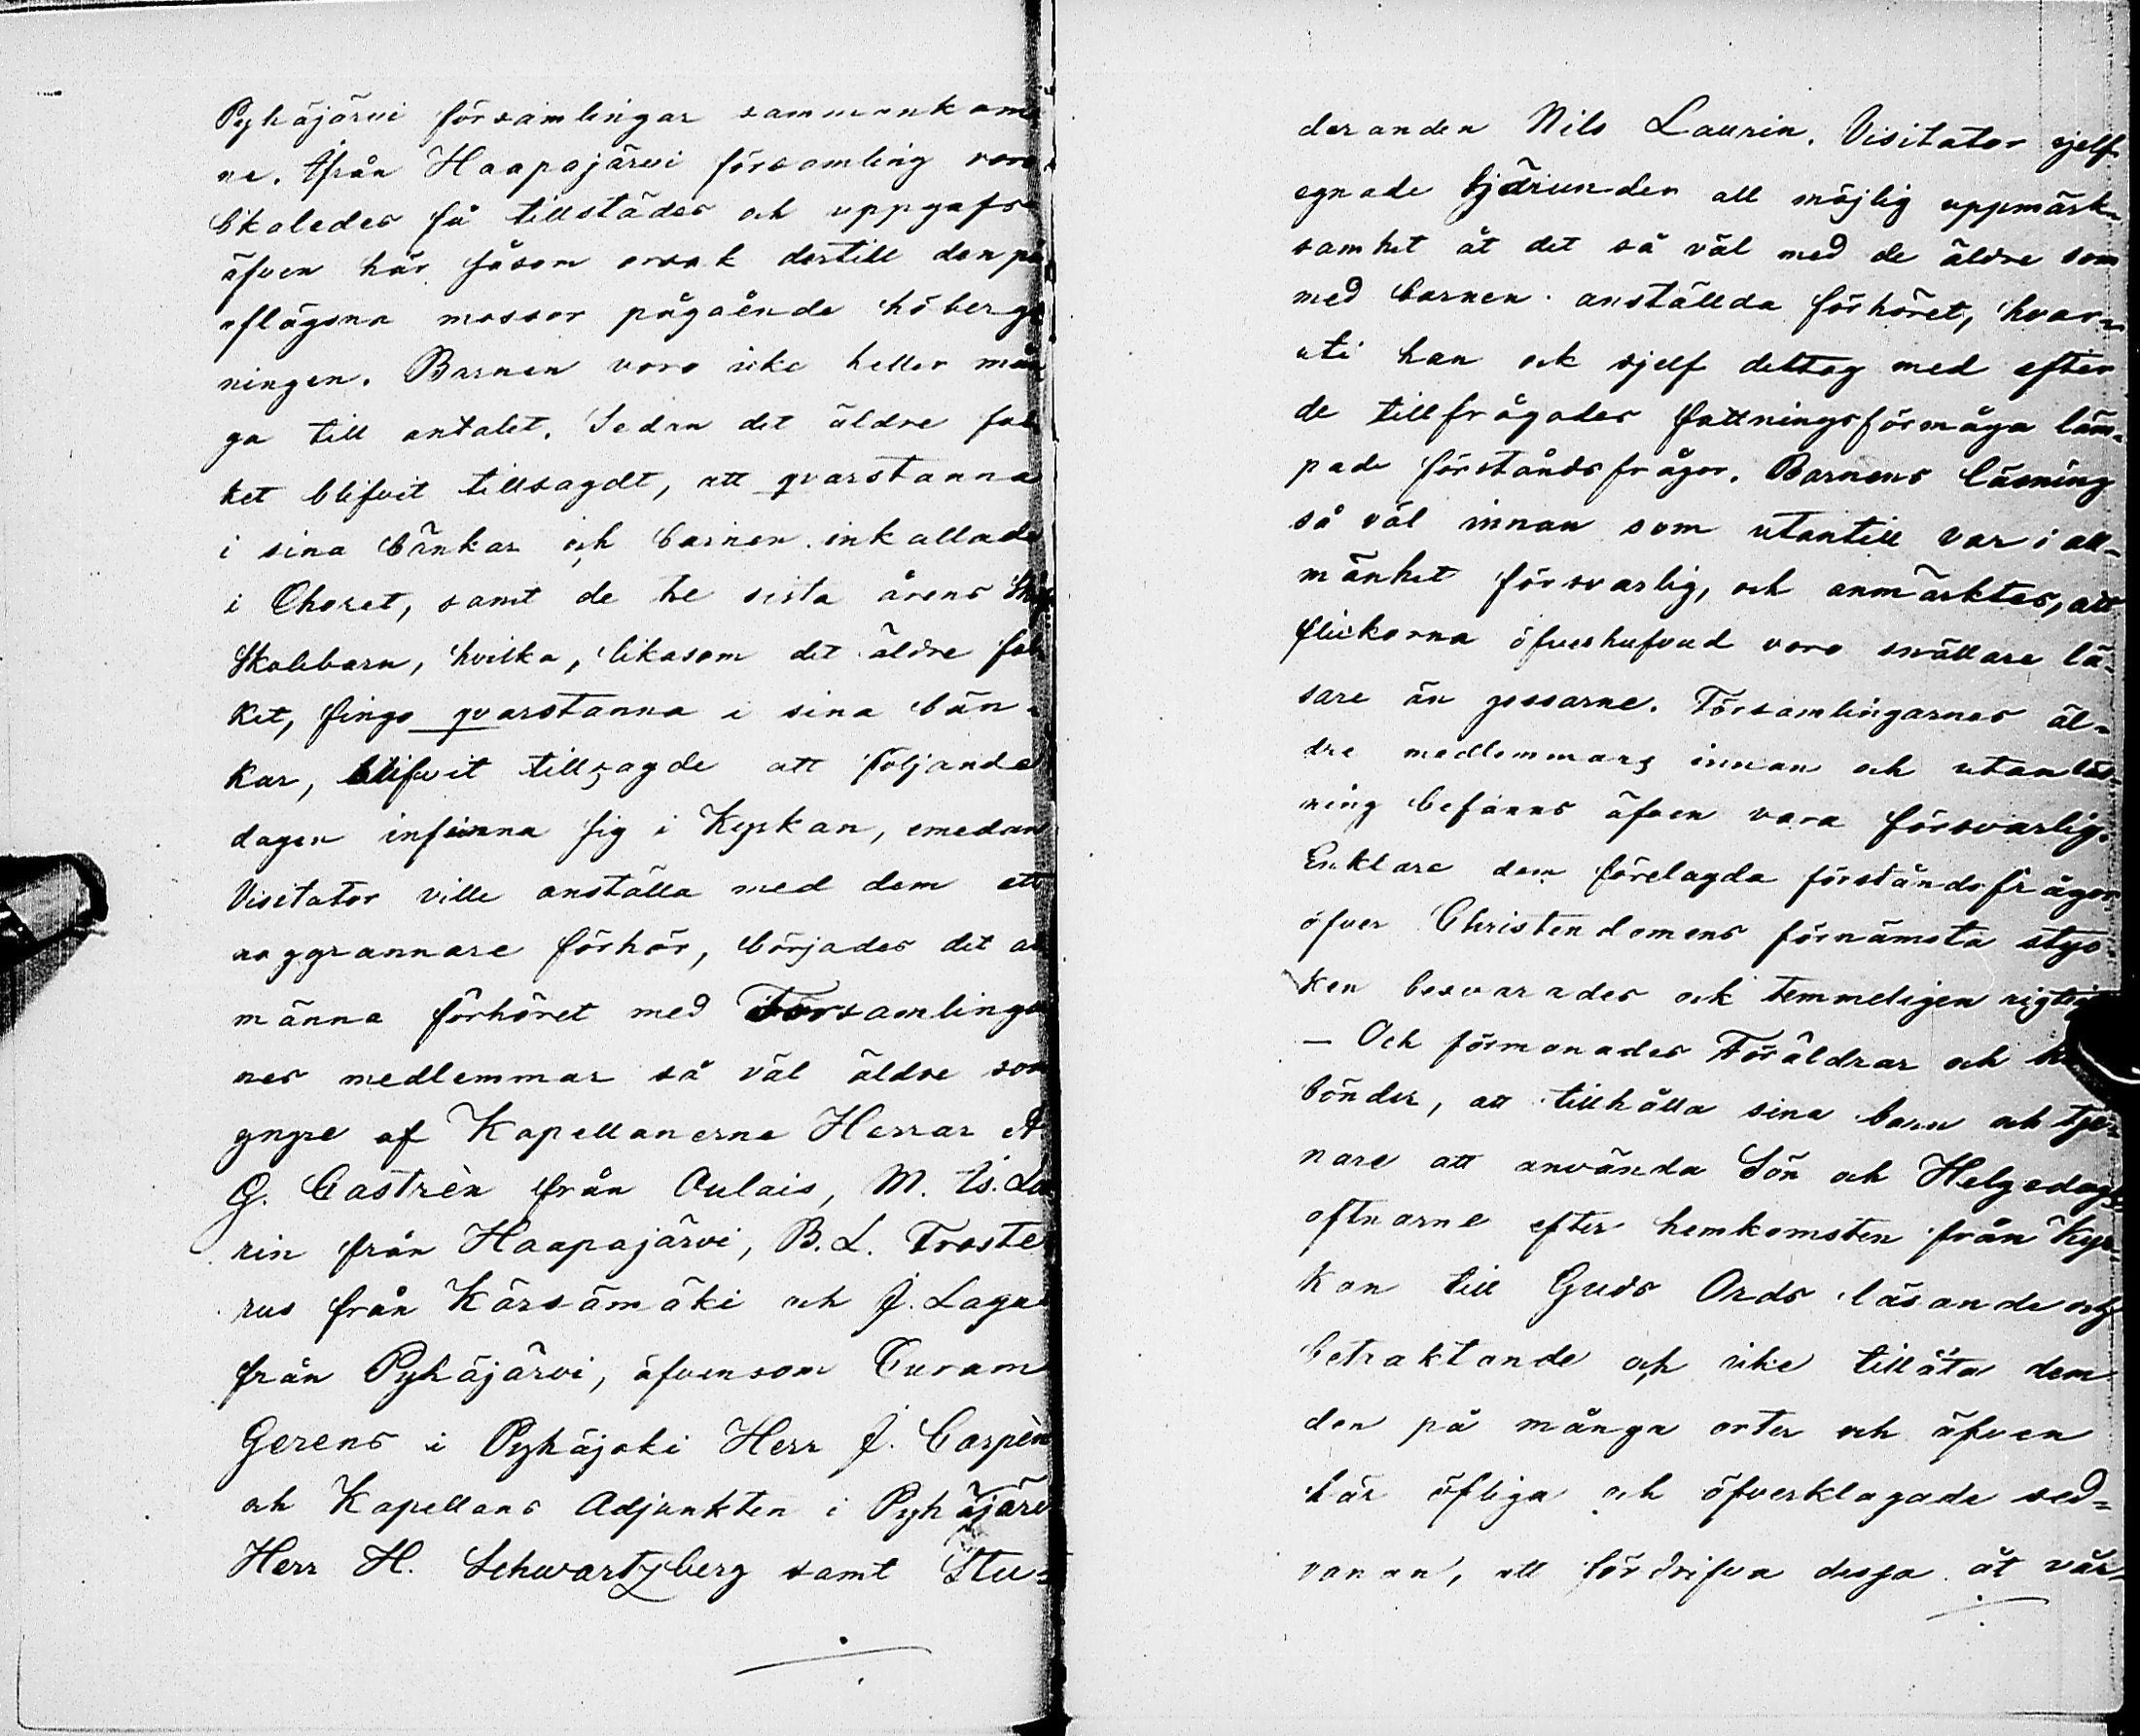 Pyhäjärvi församlingar sammankom
ne. Ifrån Haapajärvi församling voro
likaledes få tillstädes och uppgafs
äfven här såsom orsak dertill den på
aflägsna mossor pågående höberg
ningen. Barnen voro icke heller mån
ga till antalet. Sedan det äldre fol
ket blifvit tillsagdt, att qvarstanna
i sina bänkar och barnen inkallade
i Choret, samt de tre sista årens
Skolebarn, hvilka, likasom det äldre fol
ket, fingo qvarstanna i sina bän-
kar, blifvit tillsagde att följande
dagen infinna sig i Kyrkan, emedan
Visitator ville anställa med dem ett
noggrannare förhör, börjades det al
männa förhöret med Församlingar
nes medlemmar så väl äldre som
yngre af Kapellanerne Herrar A
G. Castrèn från Oulais, M. Is. Lau
rin från Haapajärvi, B. L. Froste
rus från Kärsämäki och J. Lagus
från Pyhäjärvi, äfvensom Curam
Gerens i Pyhäjoki Herr J. Carpèn
och Kapellans Adjunkten i Pyhäjärv
Herr H. Schwartzberg samt Stu-
deranden Nils Laurin. Visitator sjelf
egnade härunder all möjlig uppmärk-
samhet åt det så väl med de äldre som
med barnen anställda förhöret, hvar-
uti han ock sjelf deltog med efter
de tillfrågades fattningsförmåga läm-
pade förståndsfrågor. Barnens läsning
så väl innan som utantill var i all-
mänhet försvarlig, och anmärktes, att
flickorna öfverhufvud voro snällare lä-
sare än gossarne. Församlingarnes äl-
dre medlemmars innan och utanläs-
ning befanns äfven vara försvarlig.
Enklare dem förelagda förståndsfrågor
öfver Christendomens förnämsta styc
ken besvarades ock temmeligen rigtig
— Och förmanades Föräldrar och hus
bönder, att tillhålla sina barn och tje-
nare att använda Sön och Helgedags
aftnarne efter hemkomsten från Kyr-
kan till Guds Ords läsande och
betraktande och icke tillåta dem
den på många orter och äfven
här öfliga och öfverklagade sed-
vanan, att fördrifva dessa åt vår-